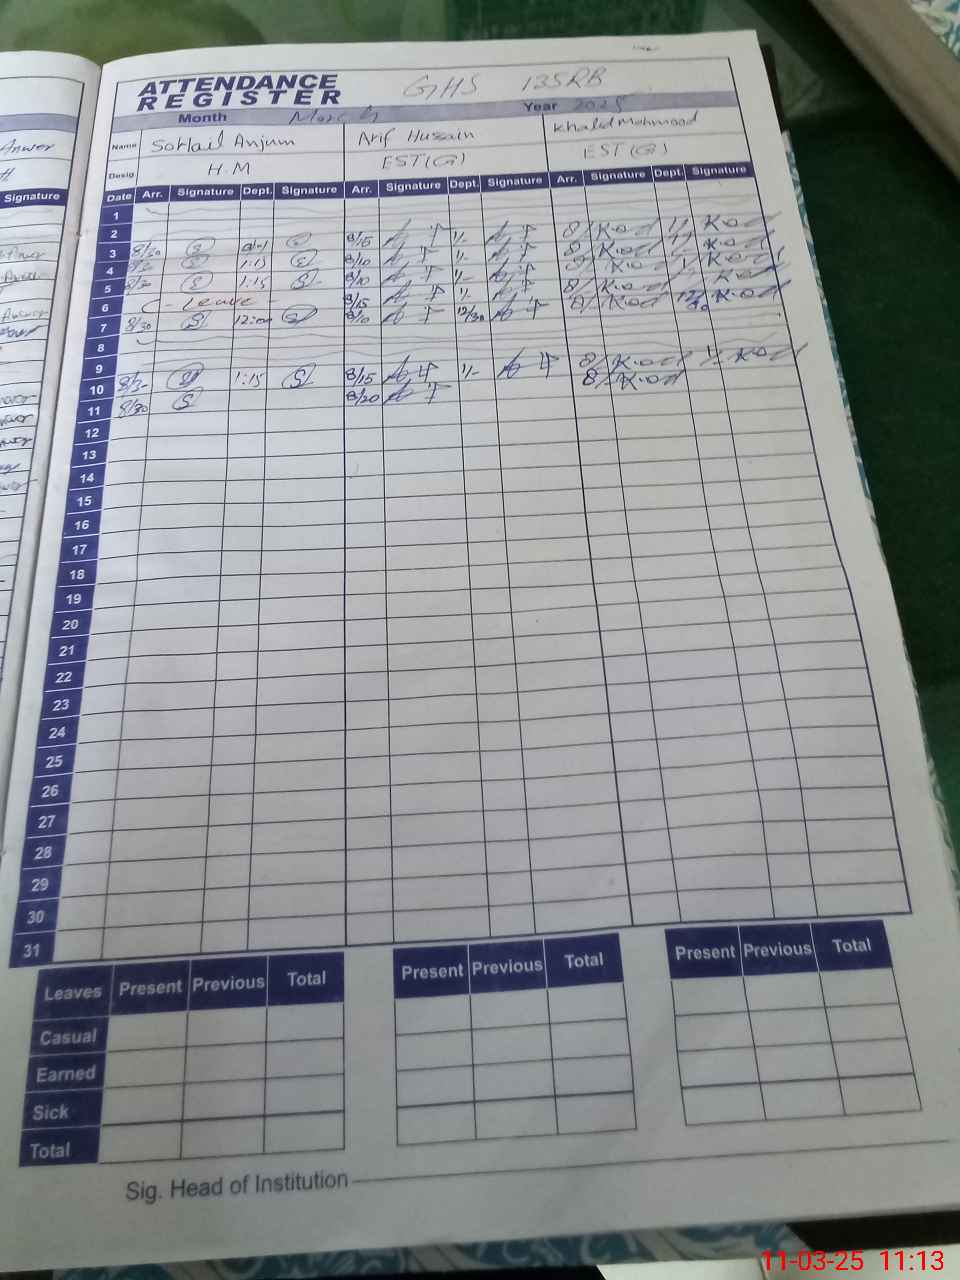 ATTENDANCE
REGISTER
GHS 135RB
Month March Year 2025
Name Sohail Anjum Arif Hussain Khalid Mahmood
Desig. H.M EST(G) EST(G)
Signature
Date Arr. Signature Dept. Signature Arr. Signature Dept. Signature Arr. Signature Dept. Signature
1
2
3 8/30 8/15 1/- 8/ K.od 1/- K.od
4 1:15 8/10 1/- 8/ K.od K.od
5 8/30 1:15 8/10 1/- K.od K.od
6 - Leave - 8/15 1/- 8/ K.od K.od
7 8/30 12:00 8/10 12/30 8/ K.od 12/30 K.od
8
9
10 8/30 1:15 8/15 1/- 8/ K.od 1/- K.od
11 8/30 8/20 8/ K.od
12
13
14
15
16
17
18
19
20
21
22
23
24
25
26
27
28
29
30
31
Leaves Present Previous Total Present Previous Total Present Previous Total
Casual
Earned
Sick
Total
Sig. Head of Institution
11-03-25 11:13